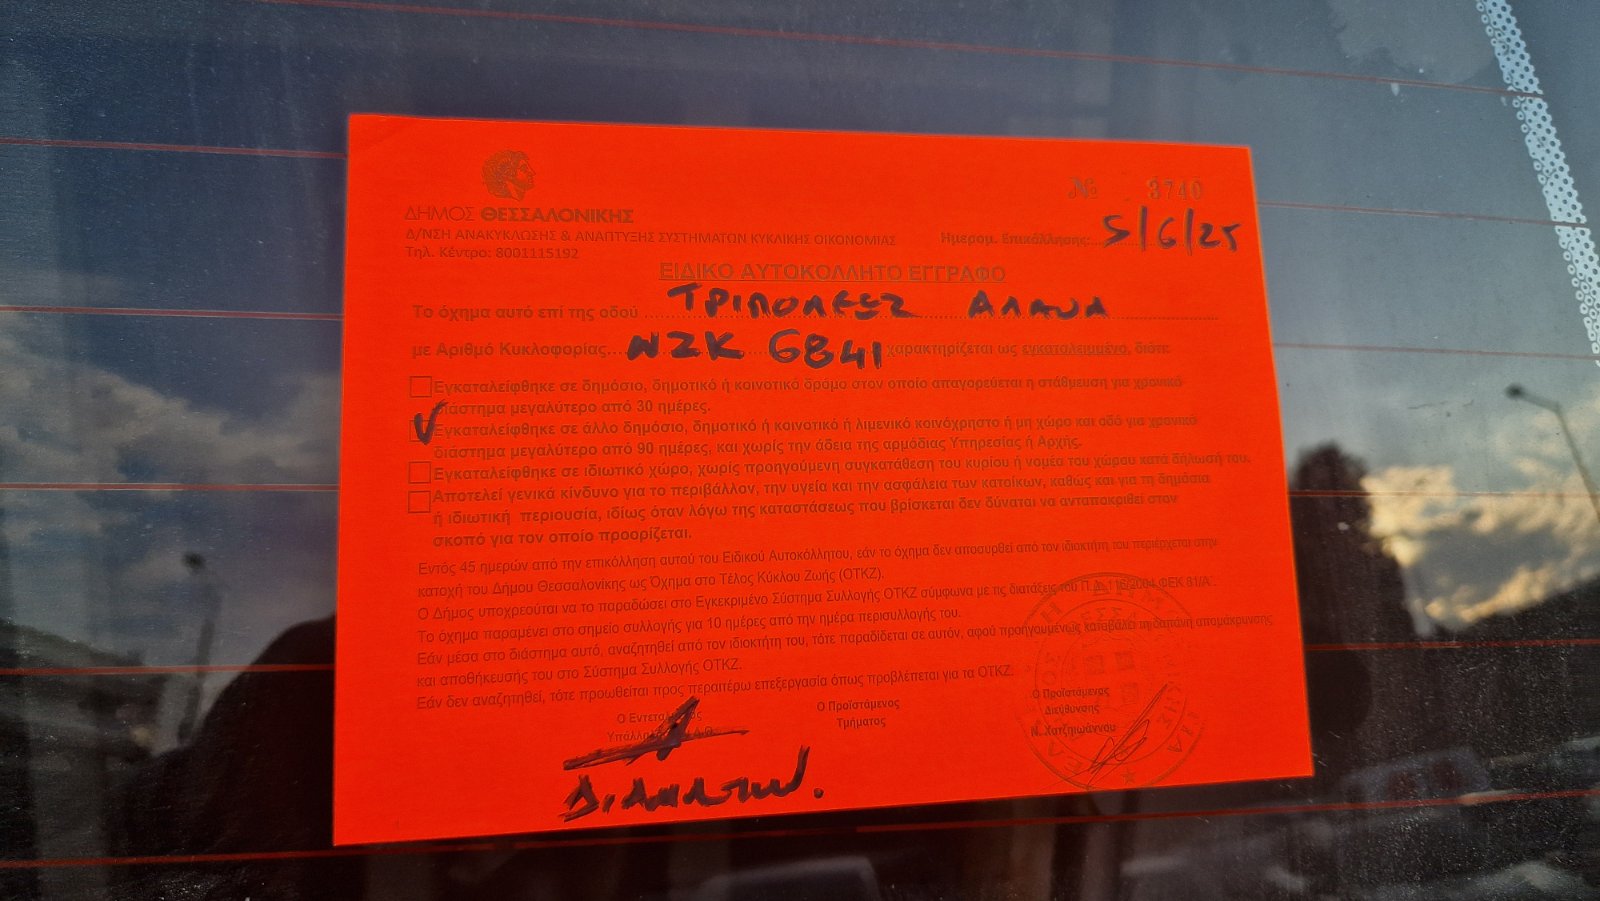 ΔΗΜΟΣ ΘΕΣΣΑΛΟΝΙΚΗΣ
Δ/ΝΣΗ ΑΝΑΚΥΚΛΩΣΗΣ & ΑΝΑΠΤΥΞΗΣ ΣΥΣΤΗΜΑΤΩΝ ΚΥΚΛΙΚΗΣ ΟΙΚΟΝΟΜΙΑΣ
Τηλ. Κέντρο: 8001115192
№ 3740
Ημερομ. Επικόλλησης: 5/6/25
ΕΙΔΙΚΟ ΑΥΤΟΚΟΛΛΗΤΟ ΕΓΓΡΑΦΟ
Το όχημα αυτό επί της οδού ΤΡΙΠΟΛΕΩΣ ΑΛΑΝΑ
με Αριθμό Κυκλοφορίας... ΝΖΚ 6841 χαρακτηρίζεται ως εγκαταλειμένο, διότι:
Εγκαταλείφθηκε σε δημόσιο, δημοτικό ή κοινοτικό δρόμο στον οποίο απαγορεύεται η στάθμευση για χρονικό
διάστημα μεγαλύτερο από 30 ημέρες.
Εγκαταλείφθηκε σε άλλο δημόσιο, δημοτικό ή κοινοτικό ή λιμενικό κοινόχρηστο ή μη χώρο και οδό για χρονικό
διάστημα μεγαλύτερο από 90 ημέρες, και χωρίς την άδεια της αρμόδιας Υπηρεσίας ή Αρχής.
Εγκαταλείφθηκε σε ιδιωτικό χώρο, χωρίς προηγούμενη συγκατάθεση του κυρίου ή νομέα του χώρου κατά δήλωσή του.
Αποτελεί γενικά κίνδυνο για το περιβάλλον, την υγεία και την ασφάλεια των κατοίκων, καθώς και για τη δημόσια
ή ιδιωτική περιουσία, ιδίως όταν λόγω της καταστάσεως που βρίσκεται δεν δύναται να ανταποκριθεί στον
σκοπό για τον οποίο προορίζεται.
Εντός 45 ημερών από την επικόλληση αυτού του Ειδικού Αυτοκόλλητου, εάν το όχημα δεν αποσυρθεί από τον ιδιοκτήτη του περιέρχεται στην
κατοχή του Δήμου Θεσσαλονίκης ως Όχημα στο Τέλος Κύκλου Ζωής (ΟΤΚΖ).
Ο Δήμος υποχρεούται να το παραδώσει στο Εγκεκριμένο Σύστημα Συλλογής ΟΤΚΖ σύμφωνα με τις διατάξεις του Π.Δ.116/2004 ΦΕΚ 81/Α΄.
Το όχημα παραμένει στο σημείο συλλογής για 10 ημέρες από την ημέρα περισυλλογής του.
Εάν μέσα στο διάστημα αυτό, αναζητηθεί από τον ιδιοκτήτη του, τότε παραδίδεται σε αυτόν, αφού προηγουμένως καταβάλει τη δαπάνη απομάκρυνσης
και αποθήκευσής του στο Σύστημα Συλλογής ΟΤΚΖ.
Εάν δεν αναζητηθεί, τότε προωθείται προς περαιτέρω επεξεργασία όπως προβλέπεται για τα ΟΤΚΖ.
Ο Προϊστάμενος
Τμήματος
Ο Προϊστάμενος
Διεύθυνσης
Ν. Χατζηιωάννου